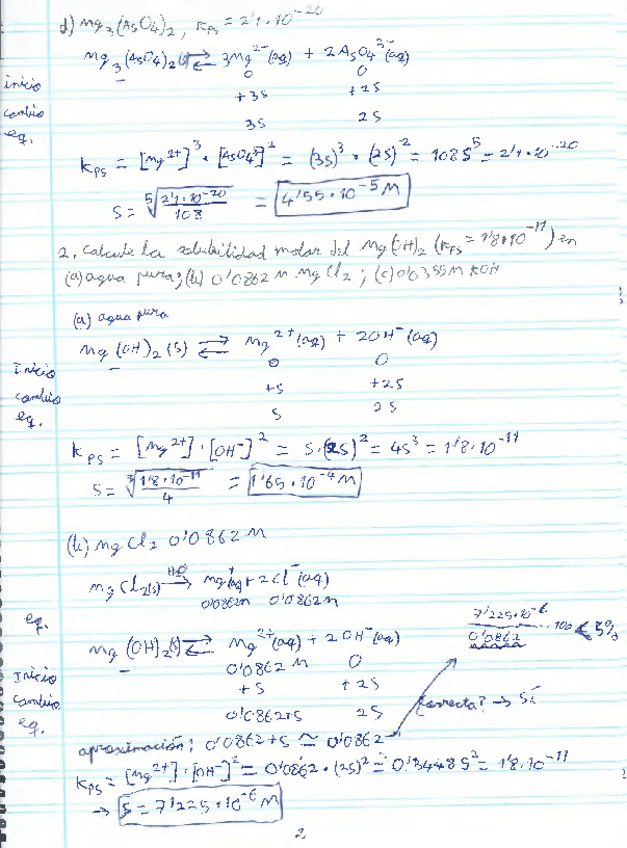 d) Mg₃(AsO₄)₂, KPS = 2'1·10⁻²⁰
Mg₃(AsO₄)₂(s) ⇄ 3Mg²⁻(aq) + 2AsO₄³⁻(aq)
inicio – 0 0
cambio +3S +2S
eq. 3S 2S
KPS = [Mg²⁺]³ · [AsO₄³⁻]² = (3S)³ · (2S)² = 108S⁵ = 2'1·10⁻²⁰
S = ⁵√(2'1·10⁻²⁰/108) = 4'55·10⁻⁵ M
2. Calcule la solubilidad molar del Mg(OH)₂ (KPS = 1'8·10⁻¹¹) en
(a) agua pura; (b) 0'0862 M MgCl₂; (c) 0'0355M KOH
(a) agua pura
Mg(OH)₂(s) ⇄ Mg²⁺(aq) + 2OH⁻(aq)
Inicio – 0 0
cambio +S +2S
eq. S 2S
KPS = [Mg²⁺]·[OH⁻]² = S·(2S)² = 4S³ = 1'8·10⁻¹¹
S = ³√(1'8·10⁻¹¹/4) = 1'65·10⁻⁴ M
(b) MgCl₂ 0'0862 M
MgCl₂(s) →H₂O Mg⁺(aq) + 2Cl⁻(aq)
eq. 0'0862M 0'0862M
7'225·10⁻⁶/0'0862 · 100 < 5%
Mg(OH)₂(s) ⇄ Mg²⁺(aq) + 2OH⁻(aq)
Inicio – 0'0862 M 0
cambio +S +2S
eq. 0'0862+S 2S
¿correcta? → Sí
aproximación: 0'0862+S ≃ 0'0862
KPS = [Mg²⁺]·[OH⁻]² = 0'0862·(2S)² = 0'3448S² = 1'8·10⁻¹¹
→ S = 7'225·10⁻⁶ M
2